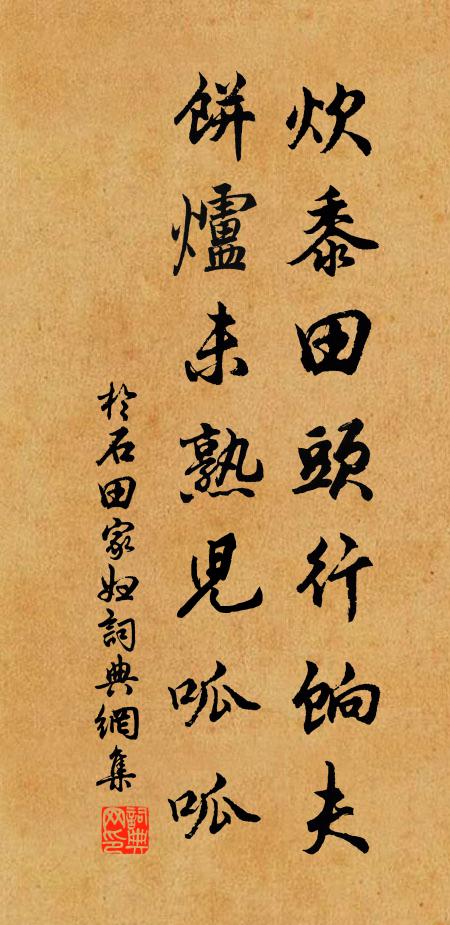 炊黍田頭行餉夫
餅爐未熟兒呱呱
於石田家婦詞典網集
詞典网印